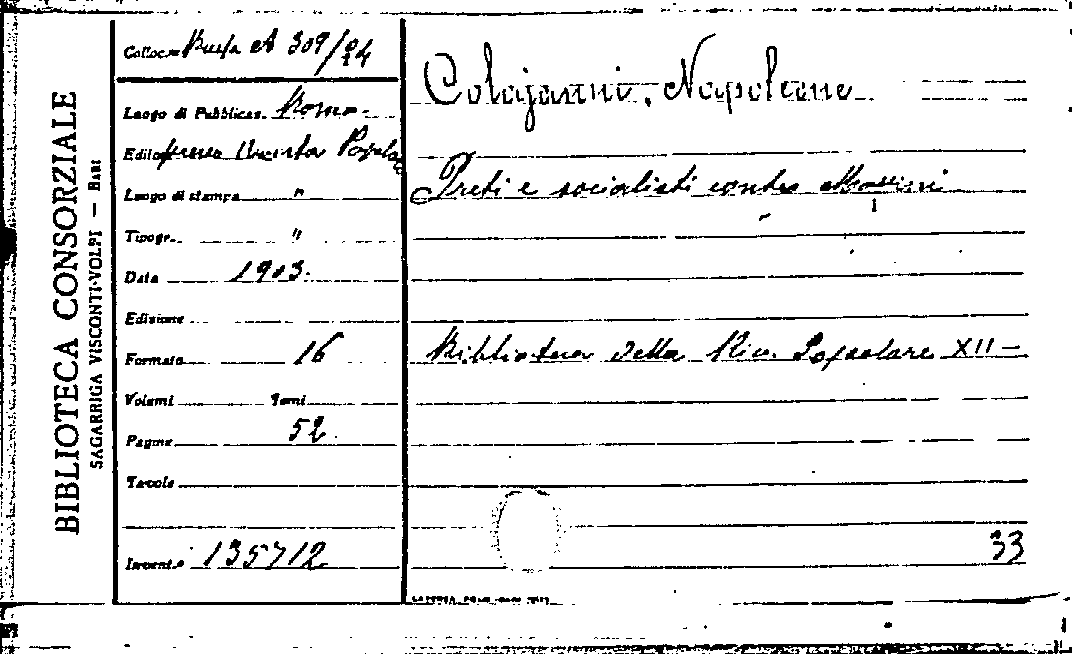 BIBLIOTECA CONSORZIALE
SAGARRIGA VISCONTI-VOLPI — BARI
Colloc. Busta A 309/24
Luogo di Pubblicaz. Roma
Edit. presso Rivista Popolare
Luogo di stampa "
Tipogr. "
Data 1903.
Edizione
Formato 16
Volumi Tomi
Pagine 52.
Tavole
Invent. 135712
Colajanni, Napoleone
Preti e socialisti contro
Biblioteca della Riv. Popolare XII —
33